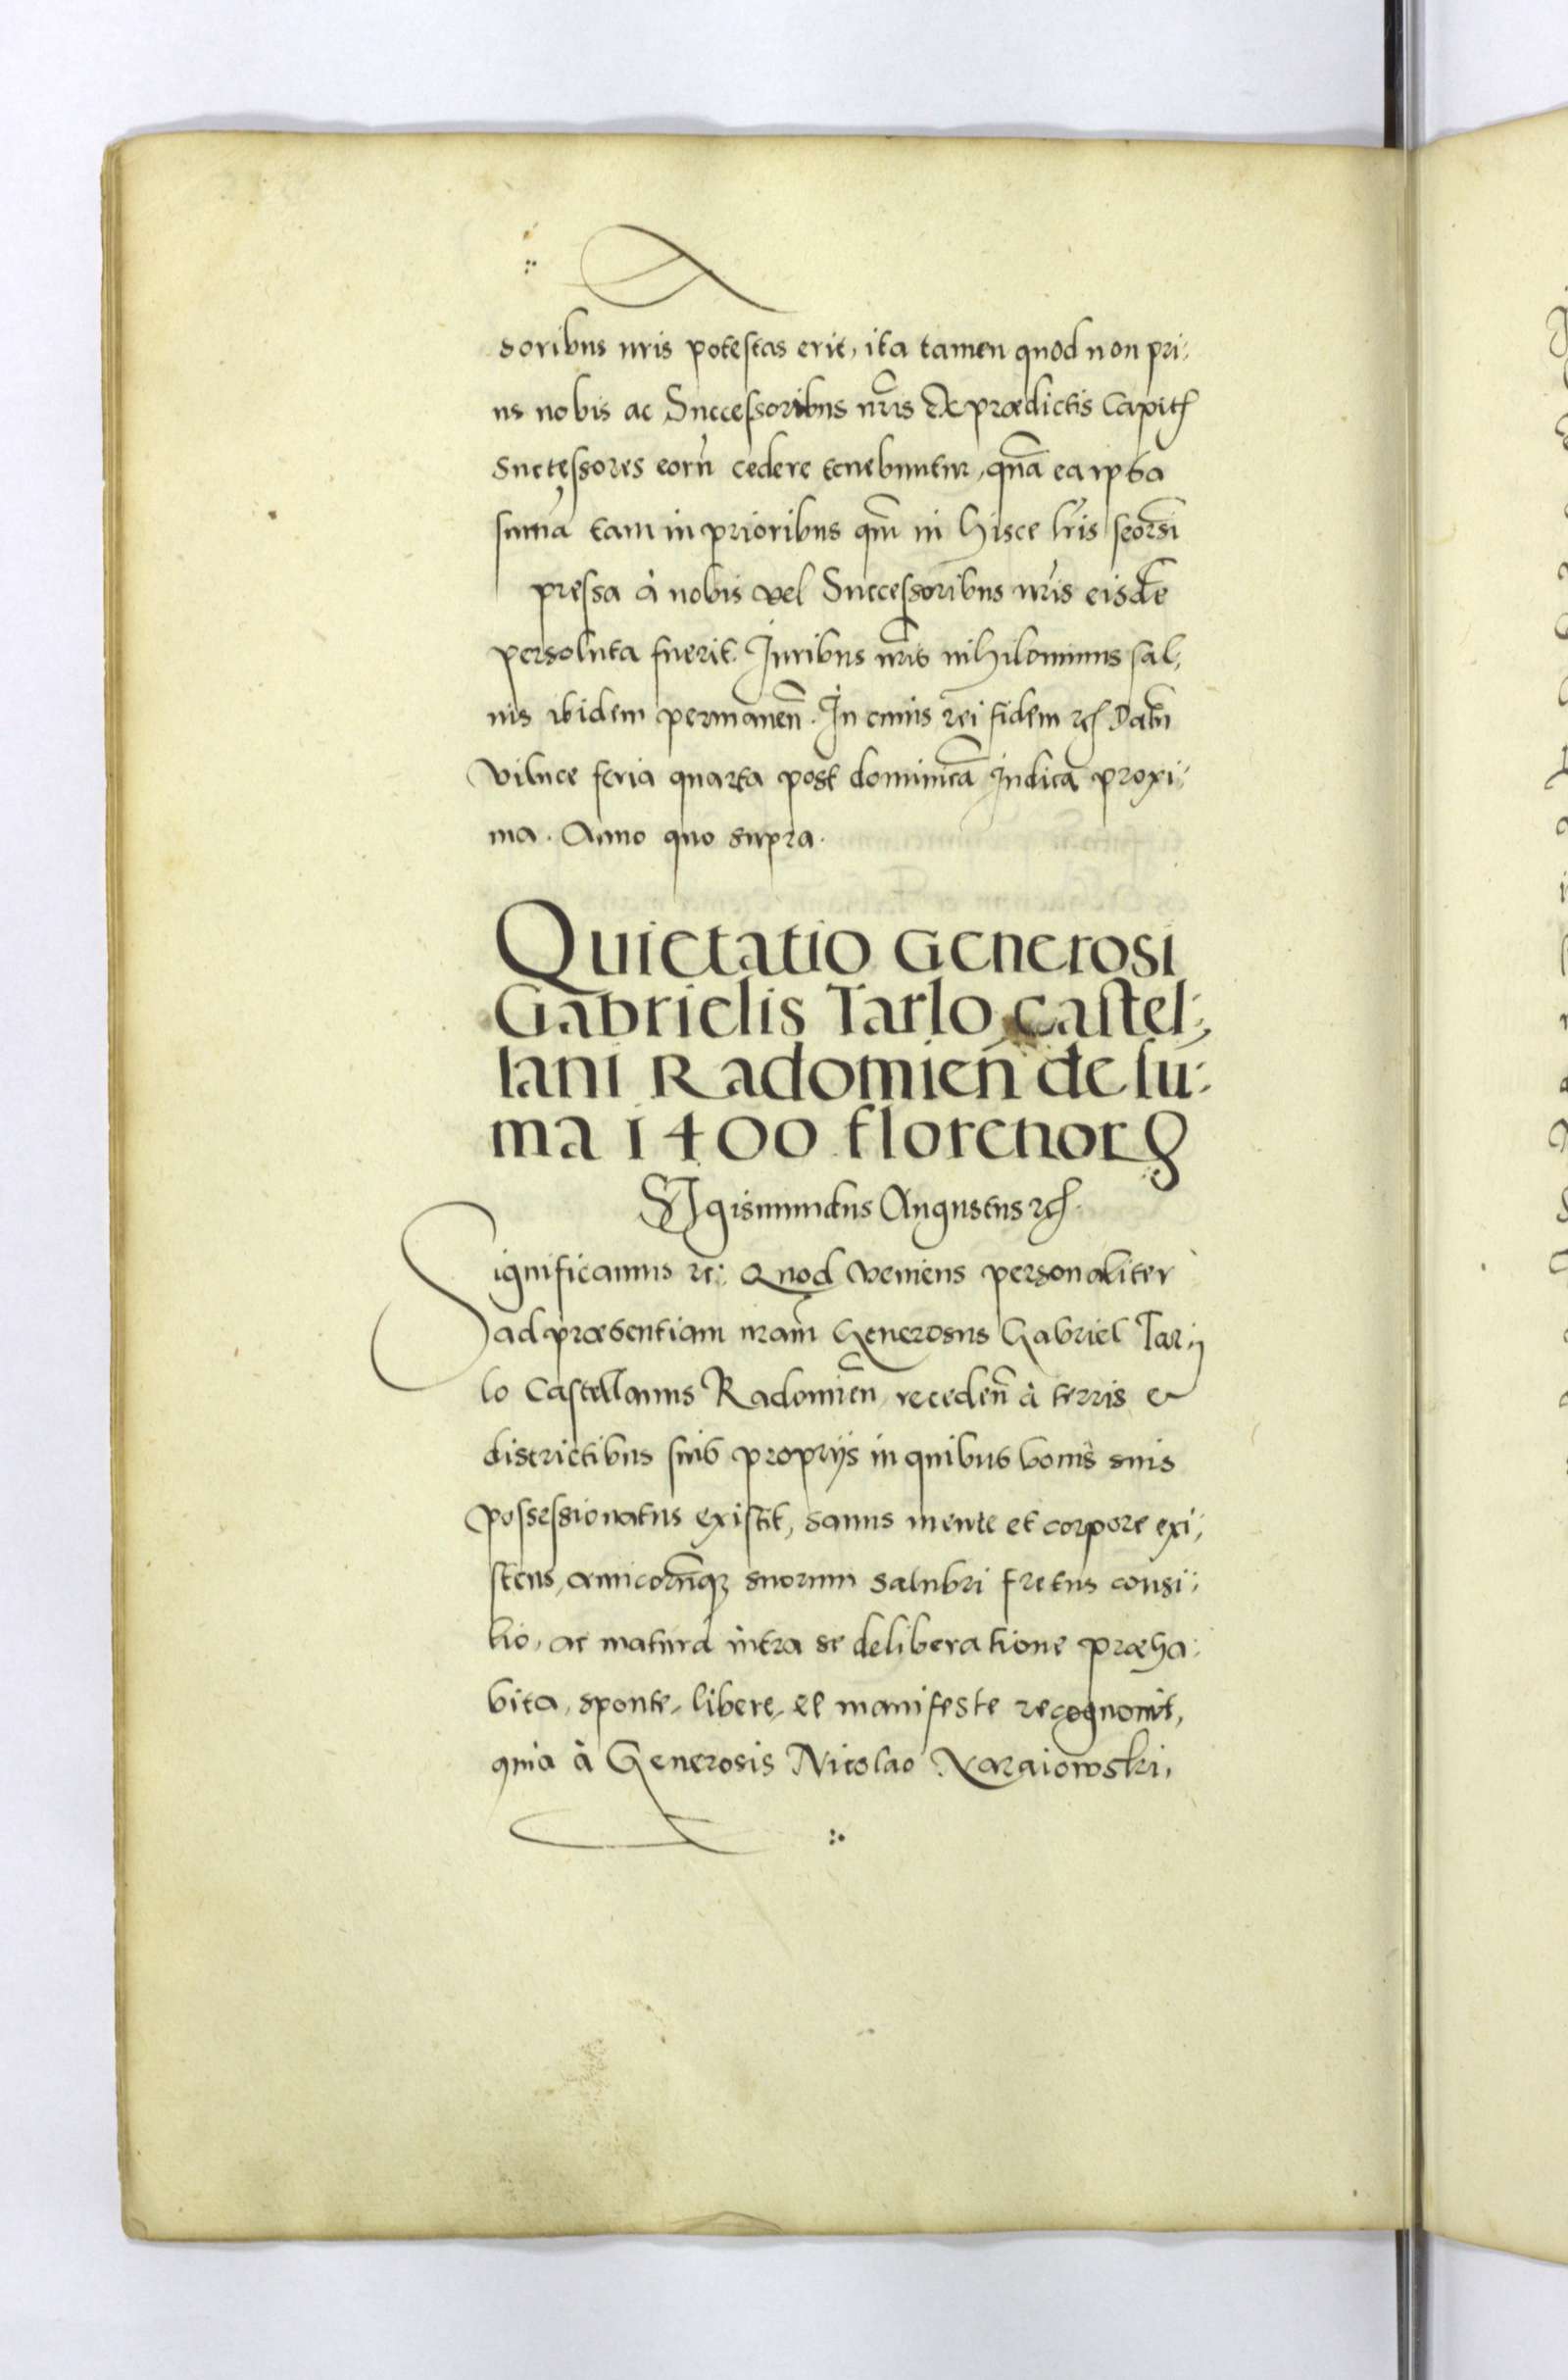 soribus nris potestas erit, ita tamen quod non pri:
us nobis ac Successoribus nr̃is de prædictis Capit
Successores eorũ cedere tenebuntur, quã ea ipsa
sum̃a tam in prioribus qm̃ in hisce lr̃is seorsĩ
pressa à nobis vel Successoribus nr̃is eisdẽ
persoluta fuerit. Iuribus nr̃is nihilominus sal,
uis ibidem permaneñ. In cuius rei fidem rc̃ Datũ
Vilnæ feria quarta post dominicã Iudica proxi:
ma. Anno quo supra.
Quietatio Generosi
Gabrielis Tarlo castel,
lani Radomień de su:
ma 1400 florenorꝝ
SIgismundus Augustus rc̃.
Significamus rc: Quod veniens personaliter
ad præsentiam nram̃ Generosus Gabriel Tar,,
lo Castellanus Radomieñ, recedeñ à terris et
districtibus suis proprijs in quibus bonis suis
possessionatus existit, sanus mente et corpore exi,
stens, amicorum̃q; suorum salubri fretus consi:
lio, ac matura intra se deliberatione præha:
bita, sponte, libere, et manifeste recognouit,
quia à Generosis Nicolao Naraiowski,